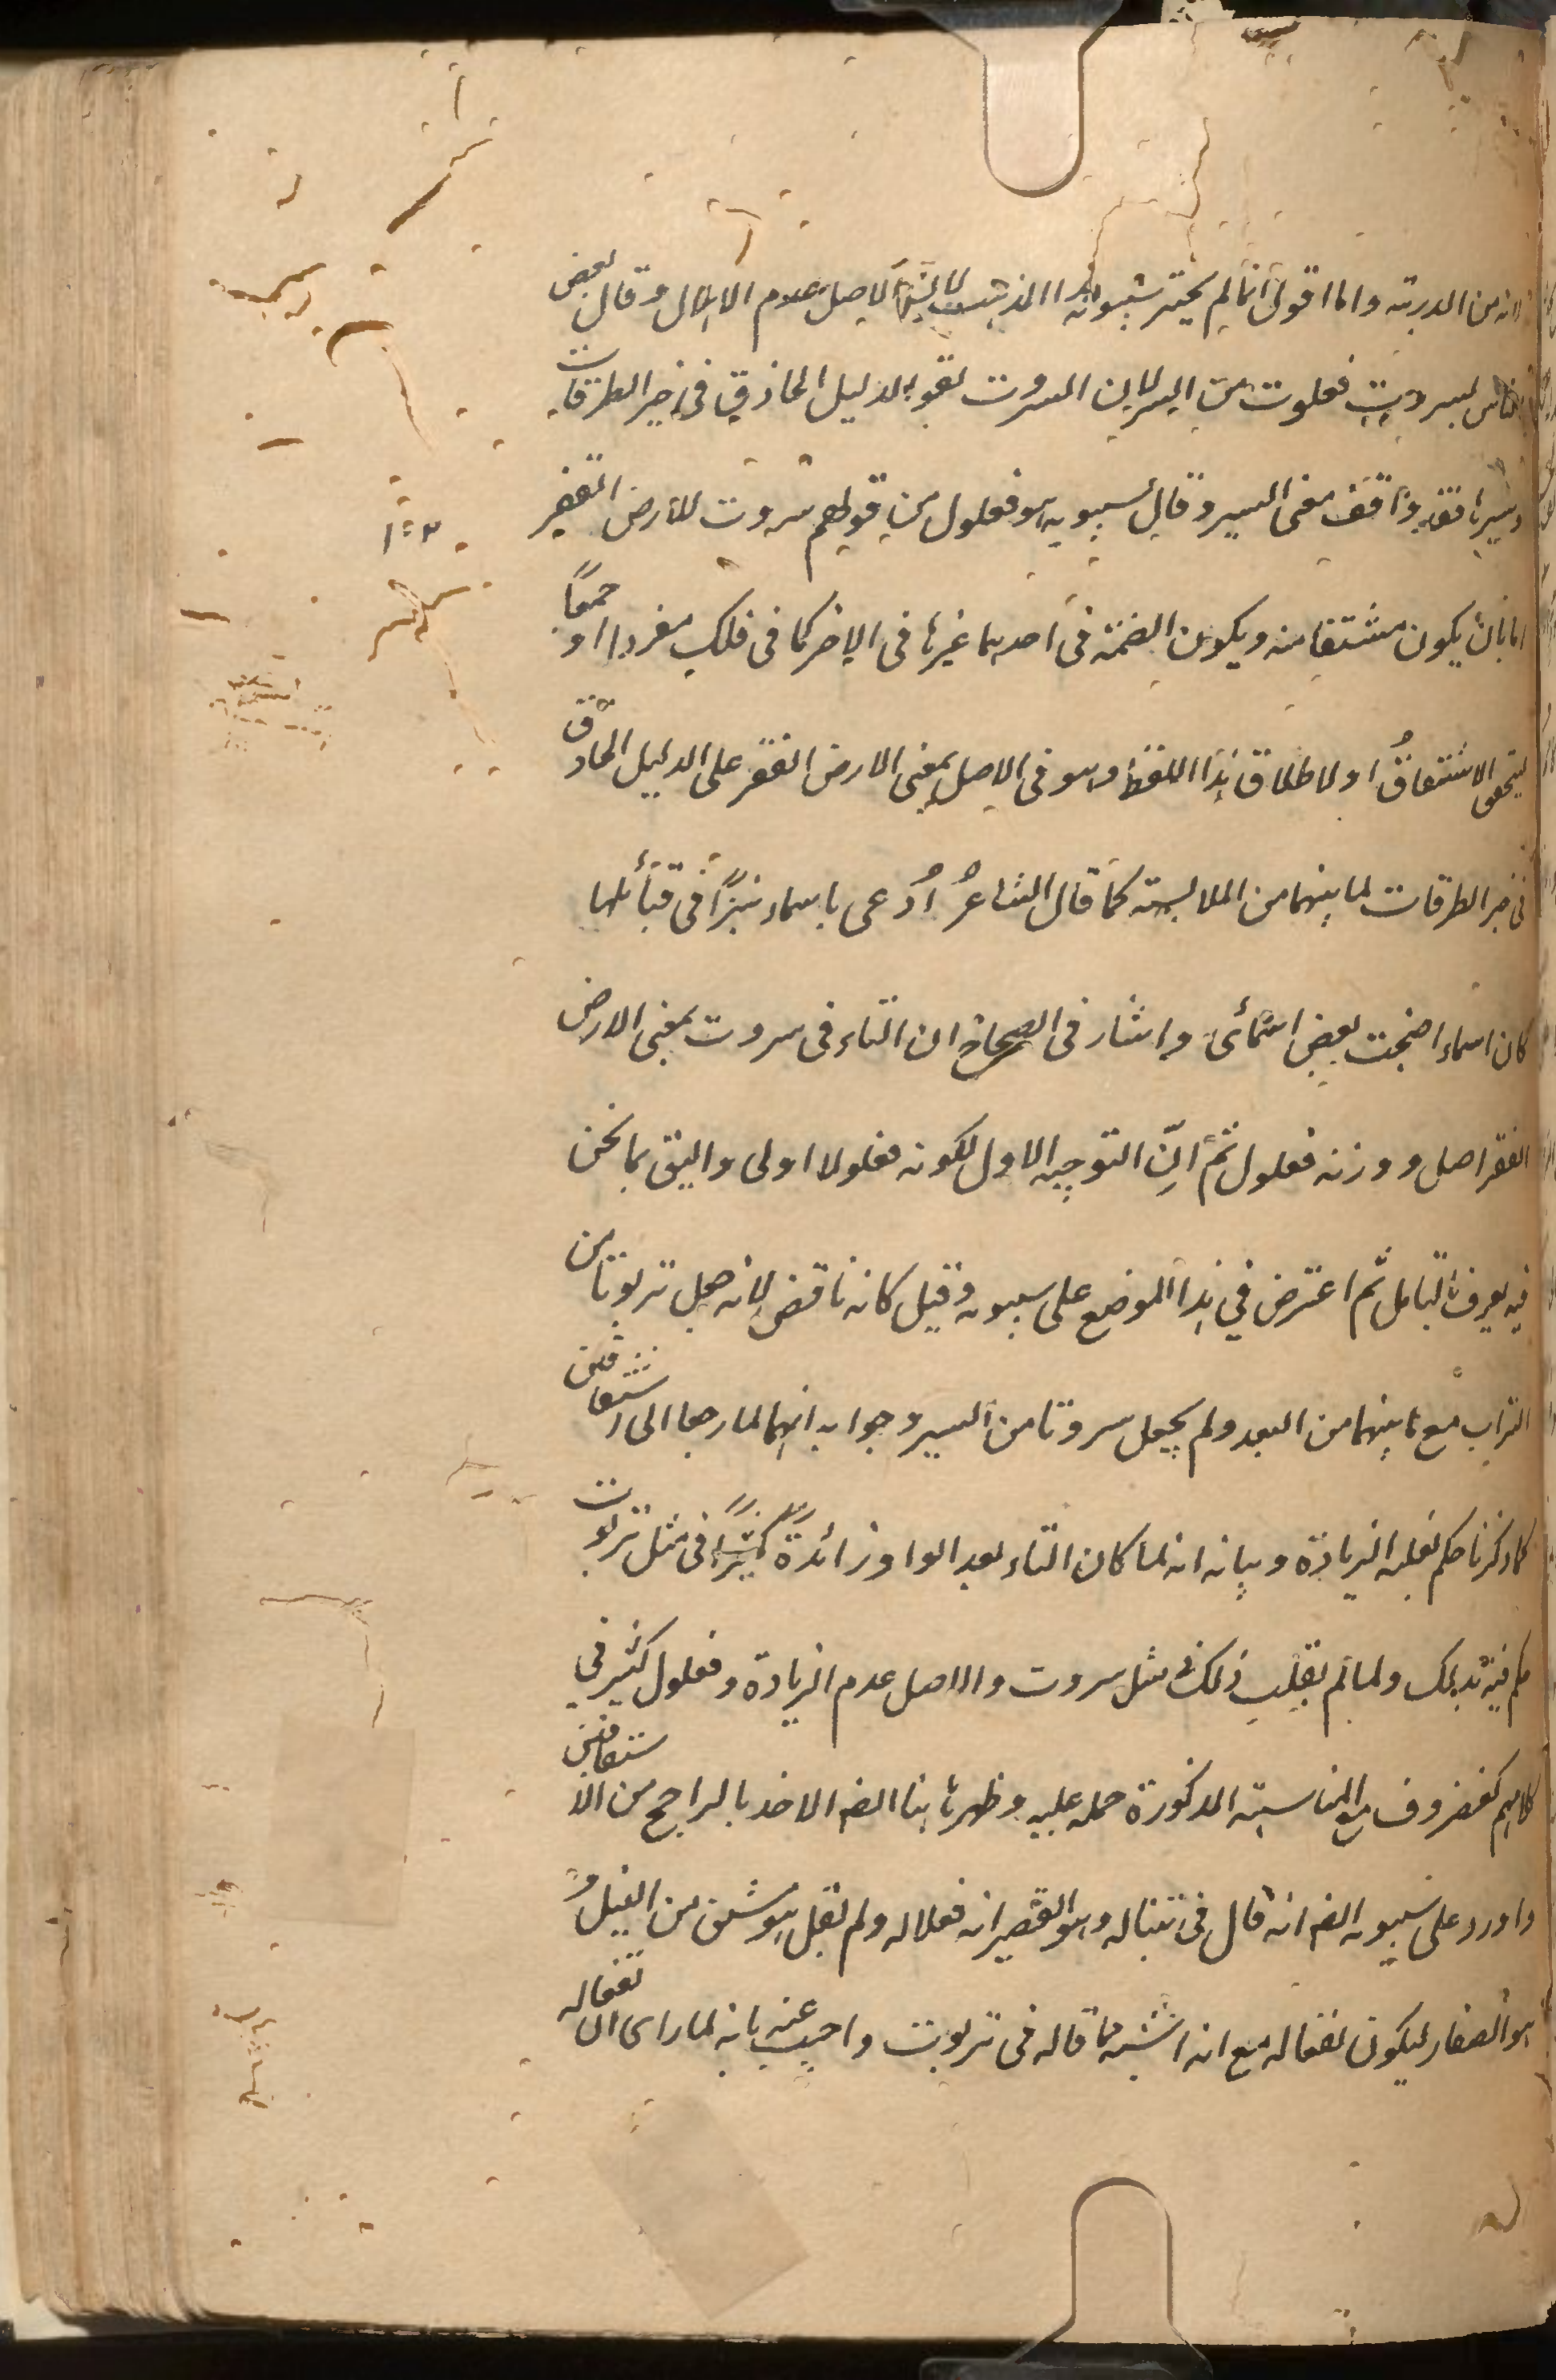 انه من الدربة واما اقول انما لم يختر سيبويه هذا المذهب لان الاصل عدم الابدال وقال بعض
الناس سبروت فعلوت من السبر لان السبروت يقع للدليل الحاذق في خبر الطرقات
وسبرها فقد وافقه معنى السبر وقال سيبويه هو فعلول من قولهم سبروت للارض القفر
اما بان يكون مشتقا منه ويكون الضمة في احدهما غيرها في الاخر كما في فلك مفردا او جمعا
ليتحقق الاشتقاق او لاطلاق هذا اللفظ وهو في الاصل بمعنى الارض القفر على الدليل الحاذق
في خبر الطرقات لما بينهما من الملابسة كما قال الشاعر اُدعى باسماء نبزًا في قبائلها
كان اسماء اضحت بعض اسمائى واشار في الصحاح ان التاء في سبروت بمعنى الارض
القفر اصل ووزنه فعلول ثم ان التوجيه الاول لكونه فعلولا اولى واليق بما نحن
فيه يعرف بالتامل ثم اعترض في هذا الموضع على سيبويه وقيل كانه ناقض لانه جعل تربوتا من
التراب مع ما بينهما من البعد ولم يجعل سبروتا من السبر وجوابه انهما لما رجعا الى اشتقاقين
كما ذكرنا حكم بغلبة الزيادة وبيانه انه لما كان التاء بعد الواو زائدة كثيرًا في مثل تربوت
حكم فيه بذلك ولما لم يغلب ذلك في مثل سبروت والاصل عدم الزيادة وفعلول كثير في
كلامهم كغضروف مع المناسبة المذكورة حمله عليه وظهر هاهنا ايضا الاخذ بالراجح من الاشتقاقين
واورد على سيبويه ايضا انه قال في تنبالة وهو القصير انه فعلالة ولم يقل هو مشتق من النبل و
هو الصغار ليكون تفعالة مع انه اشبه مما قاله في تربوت واجيب عنه بانه لما راى ان تفعالة